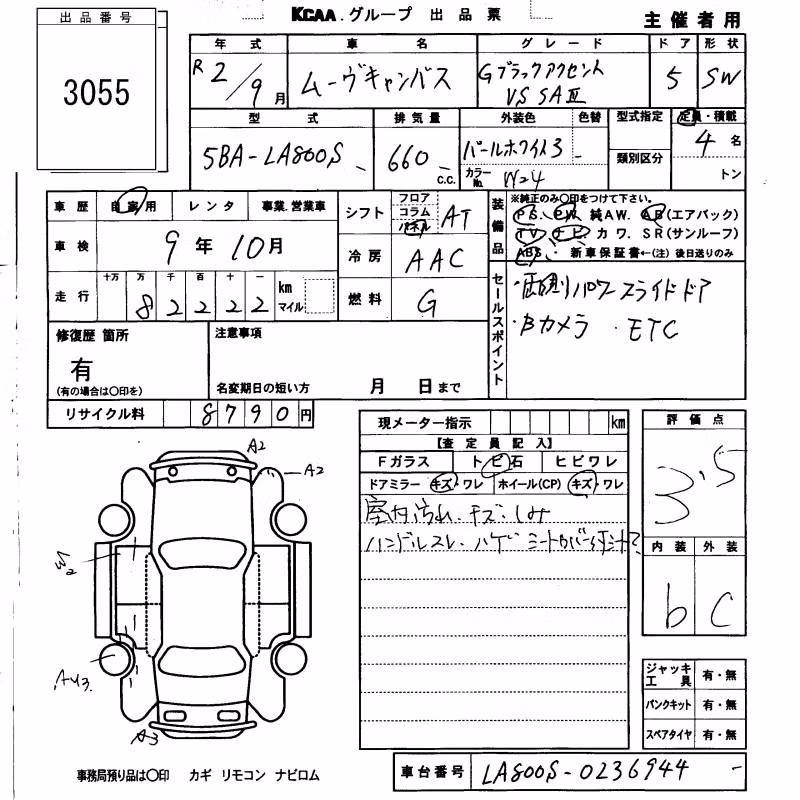 KCAA.グループ 出品票
主催者用
出品番号
3055
年式 車名 グレード ドア 形状
R2/9月 ムーヴキャンバス Gブラックアクセント VS SAⅢ 5 SW
型式 排気量 外装色 色替 型式指定 定員・積載
5BA-LA800S 660 c.c. パールホワイト3 - 類別区分 4名
カラーNo. W24 トン
車歴 自家用 レンタ 事業.営業車 シフト フロア コラム パネル AT
装備品 ※純正のみ〇印をつけて下さい。
PS. PW. 純AW. AB(エアバック)
TV. ナビ. カワ. SR(サンルーフ)
ABS. 新車保証書←(注)後日送りのみ
車検 9年10月 冷房 AAC
走行 十万 万 千 百 十 一 km マイル
82222 燃料 G
セールスポイント
・両側パワースライドドア
・Bカメラ ・ETC
修復歴 箇所 注意事項
有
(有の場合は〇印を) 名変期日の短い方 月 日まで
リサイクル料 8790円
現メーター指示 km
【査定員記入】
Fガラス トビ石 ヒビワレ
ドアミラー キズ・ワレ ホイール(CP) キズ・ワレ
室内汚れ.キズ.しみ
ハンドルスレ.ハゲ
評価点
3.5
内装 外装
b C
A2
A2
W2
AU3.
A3
ジャッキ工具 有・無
パンクキット 有・無
スペアタイヤ 有・無
事務局預り品は〇印 カギ リモコン ナビロム
車台番号 LA800S-0236944